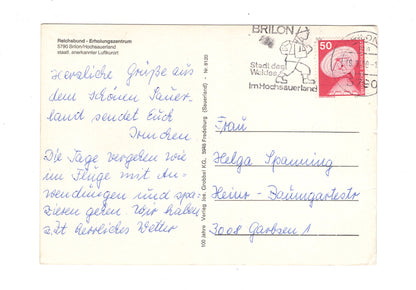 Reichsbund - Erholungszentrum
5790 Brilon/Hochsauerland
staatl. anerkannter Luftkurort
Herzliche Grüße aus
dem schönen Sauer-
land sendet Euch
Die Tage vergehen wie
im Fluge mit An-
wendungen und spa-
zieren gehen Wir haben
z.Zt herrliches Wetter
100 Jahre Verlag Jos. Grobbel KG, 5948 Fredeburg (Sauerland) - Nr. 8120
BRILON
Stadt des
Waldes
Im Hochsauerland
50
Frau
Helga Spanning
Heinr.-Baumgartestr
3008 Garbsen 1